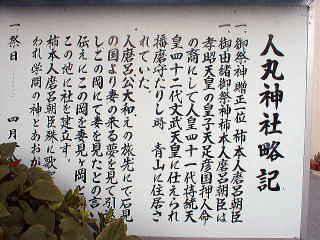 人丸神社略記
一御祭神贈正一位 柿本人麿呂朝臣
一御由緒御祭神柿本人麿呂朝臣は
孝昭天皇の皇子天足彦国押人命
の裔にして人皇四十一代持統天
皇四十二代文武天皇に仕えられ
播磨守たりし時 青山に住居さ
れていた。
人麿呂公大和えの旅先にて石見
の国より妻の来る夢を見て引
しこの岡にて妻を見たとの言い
伝えにてこの岡を妻見ヶ岡と
この地に社を建立す。
柿本人麿呂朝臣殊に歌
われ学問の神とあおが
一祭日 四月